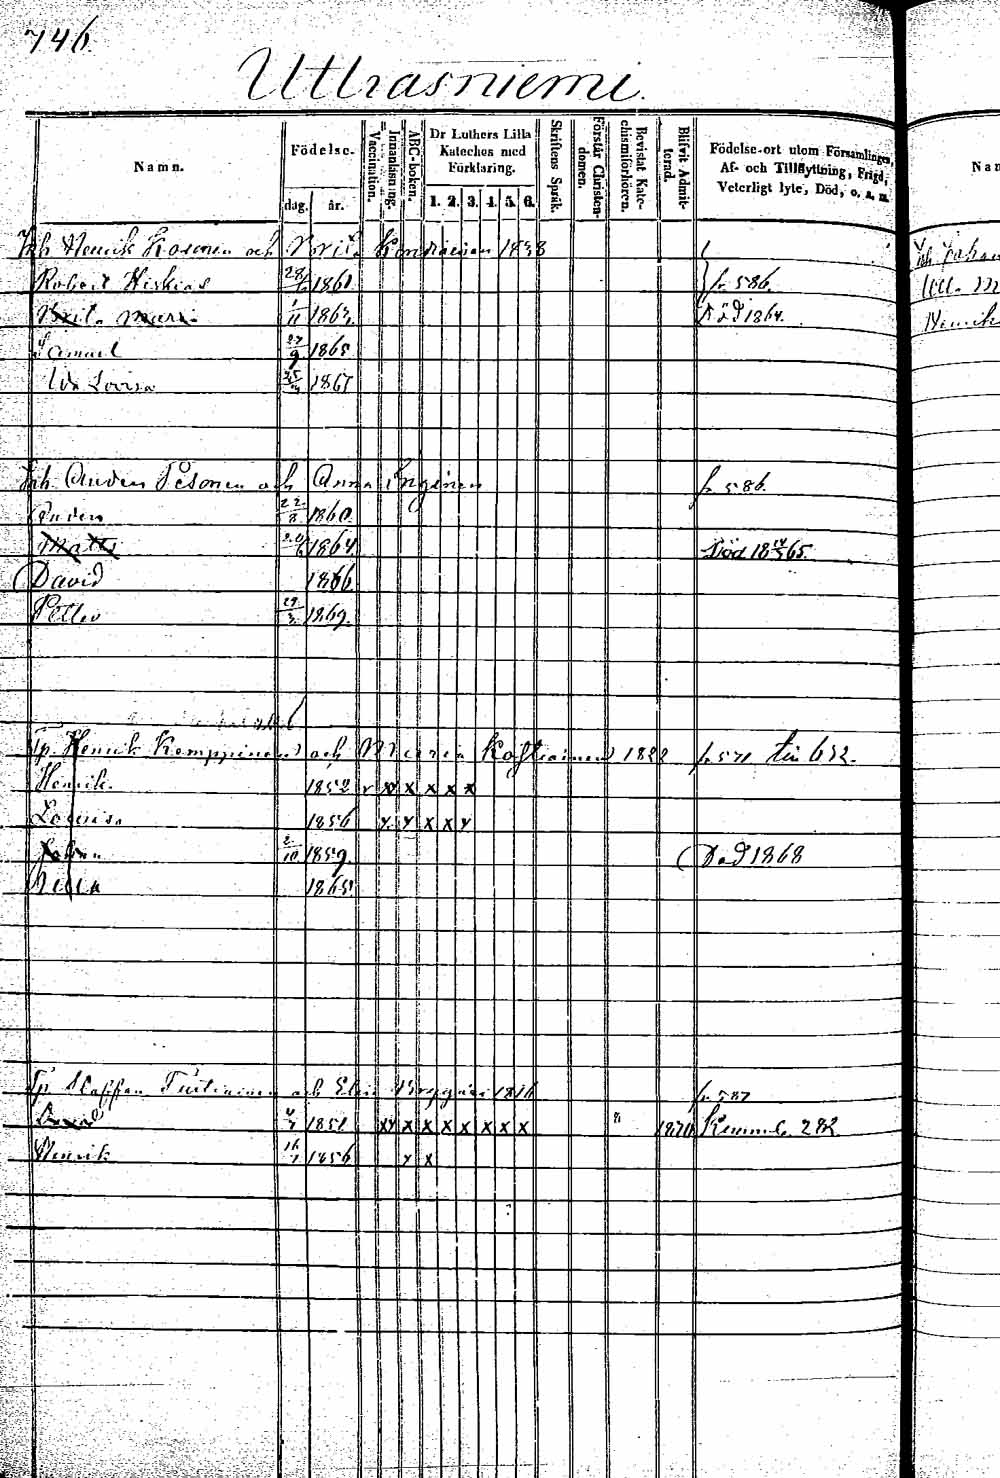 746.
Uttrasniemi.
Namn. Födelse. dag. år. Vaccination. Innanläsning. ABC-boken. Dr Luthers Lilla Kateches med Förklaring. 1. 2. 3. 4. 5. 6. Skriftens Språk. Förstår Christendomen. Bevistat Katechismiförhören. Blifvit Admitterad. Födelse-ort utom Församlingen, Af- och Tillflyttning, Frigd, Veterligt lyte, Död, o. s. m.
Inh Henrik Kosonen och Brita 1838
Robert Hiskias 28/6 1861. fr 586.
Brita Maria 1/11 1863. Död 1864.
Samuel 27/9 1865
Ida Lovisa 1867
Inh. Anders Pesonen och Anna Inginen fr 586.
Anders 22/8 1860.
Matts 20/6 1864. Död 18 14/5 65.
David 1866.
Petter 29/3 1869.
Tp. Henrik Kemppinen och Maria 1822 fr 571 till 632.
Henrik. 1852 v xx x x x x
Lovisa 1856 x x x x x
Johan 2/10 1859. Död 1868
Ulla 1865
Tp Staffan Tiitinen och Elin 1816 fr 587
4/7 1851 xx x x x x x x x 1870 282.
Henrik 16/7 1856 x x
Inh Johan
Ulla M
Henrik